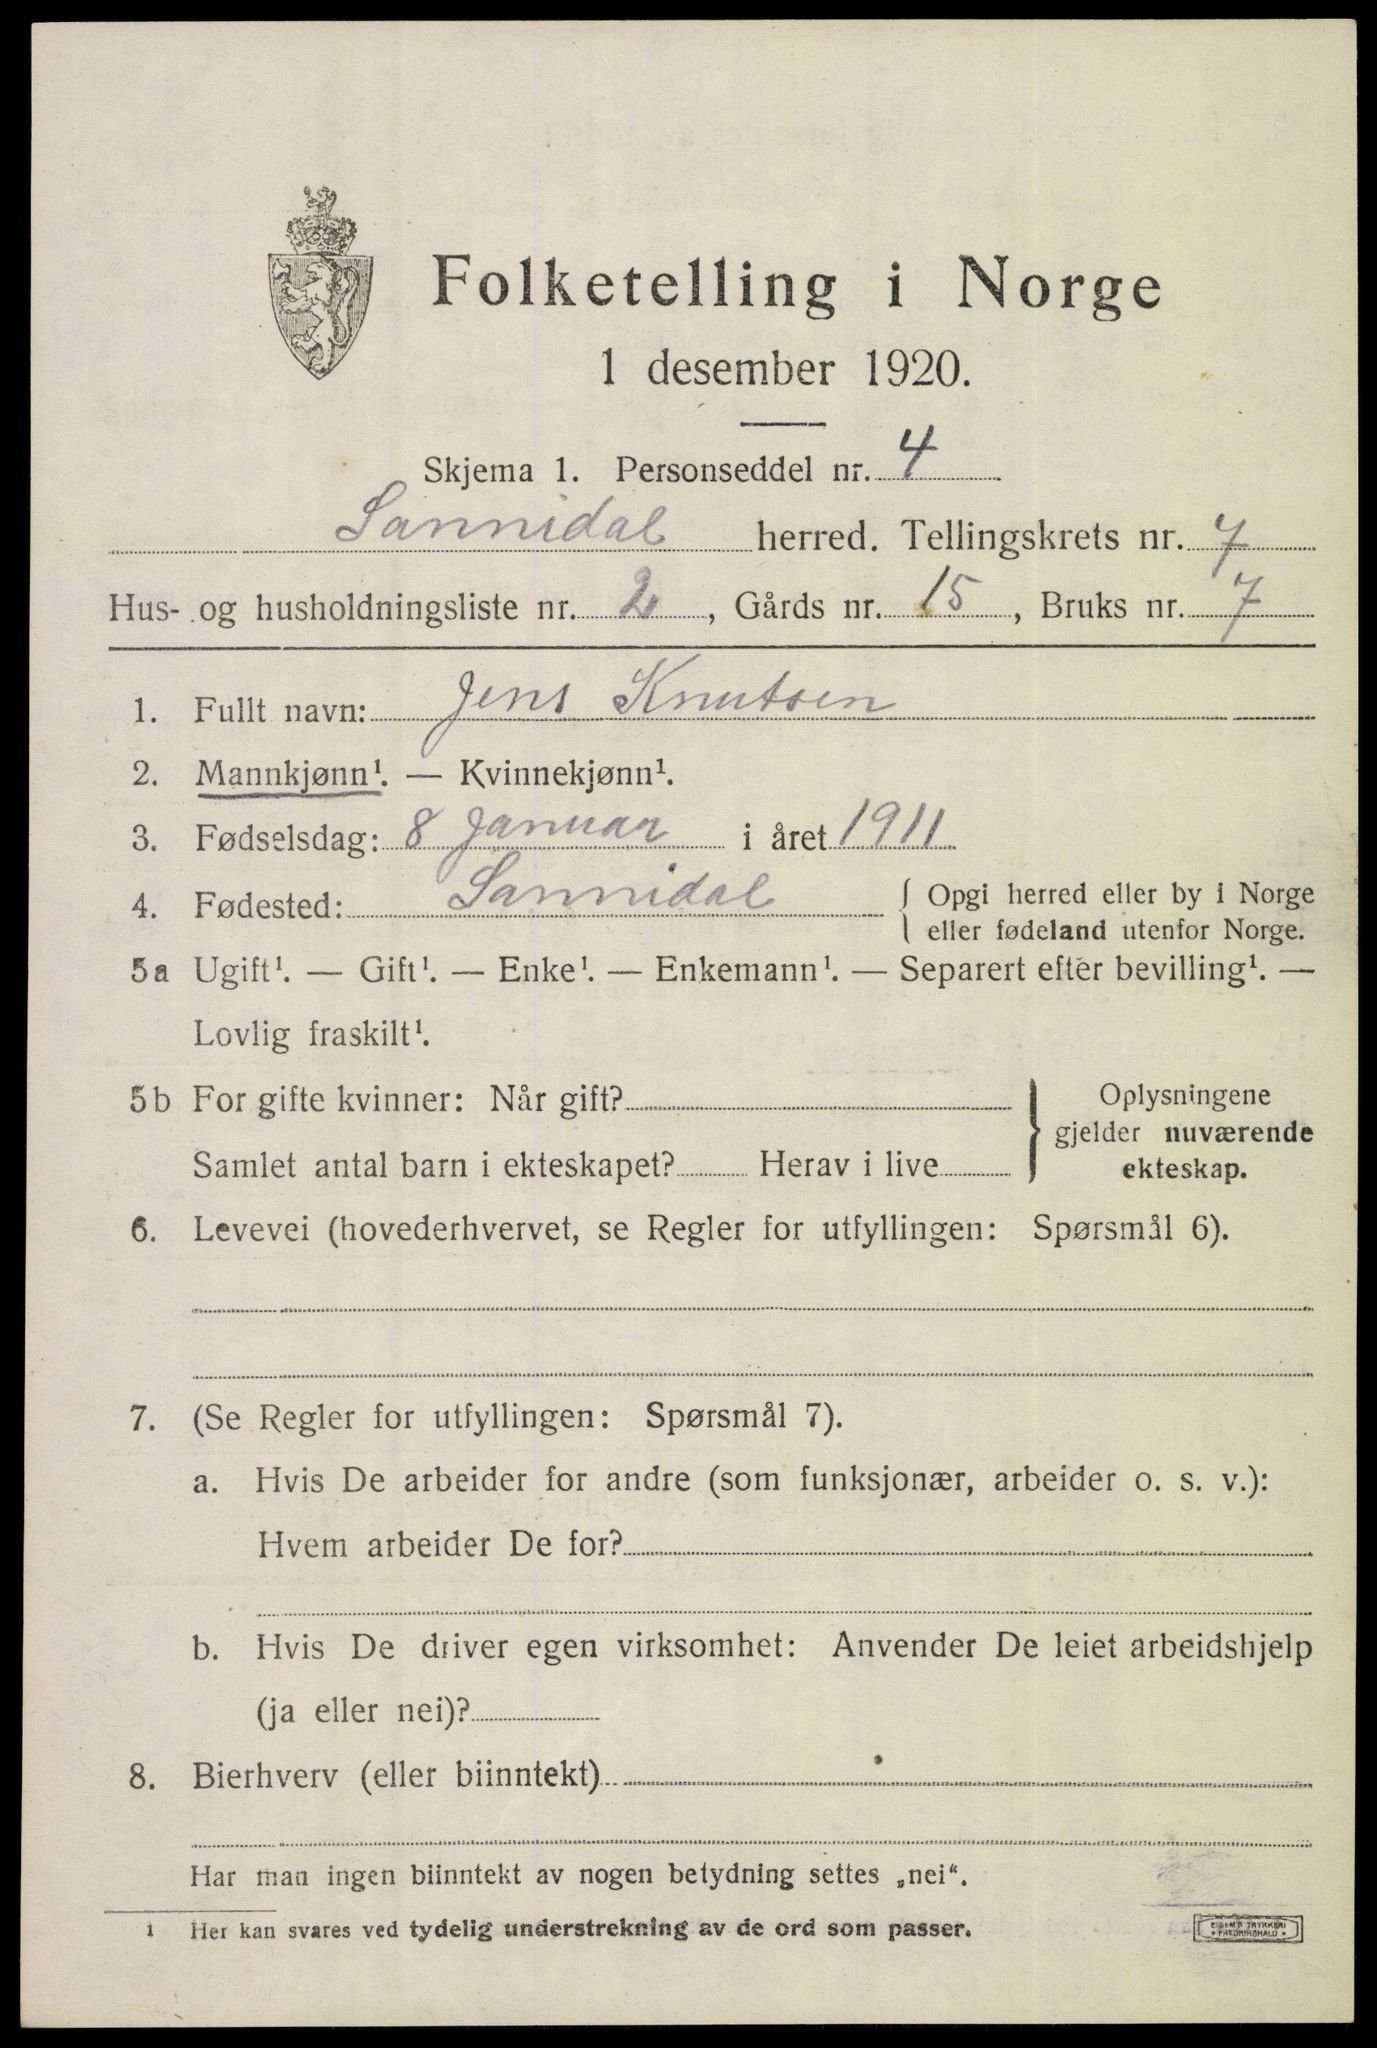 Folketelling i Norge
1 desember 1920.
Skjema 1. Personseddel nr. 4
Sannidal herred. Tellingskrets nr. 7
Hus- og husholdningsliste nr. 2, Gårds nr. 15, Bruks nr. 7
1. Fullt navn: Jens Knutsen
2. Mannkjønn¹. — Kvinnekjønn¹.
3. Fødselsdag: 8 Januar i året 1911
4. Fødested: Sannidal { Opgi herred eller by i Norge
eller fødeland utenfor Norge.
5a Ugift¹. — Gift¹. — Enke¹. — Enkemann¹. — Separert efter bevilling¹. —
Lovlig fraskilt¹.
5b For gifte kvinner: Når gift?
Samlet antal barn i ekteskapet? Herav i live
} Oplysningene
gjelder nuværende
ekteskap.
6. Levevei (hovederhvervet, se Regler for utfyllingen: Spørsmål 6).
7. (Se Regler for utfyllingen: Spørsmål 7).
a. Hvis De arbeider for andre (som funksjonær, arbeider o. s. v.):
Hvem arbeider De for?
b. Hvis De driver egen virksomhet: Anvender De leiet arbeidshjelp
(ja eller nei)?
8. Bierhverv (eller biinntekt)
Har man ingen biinntekt av nogen betydning settes „nei“.
¹ Her kan svares ved tydelig understrekning av de ord som passer.
TRYKKERI
FREDRIKSHALD